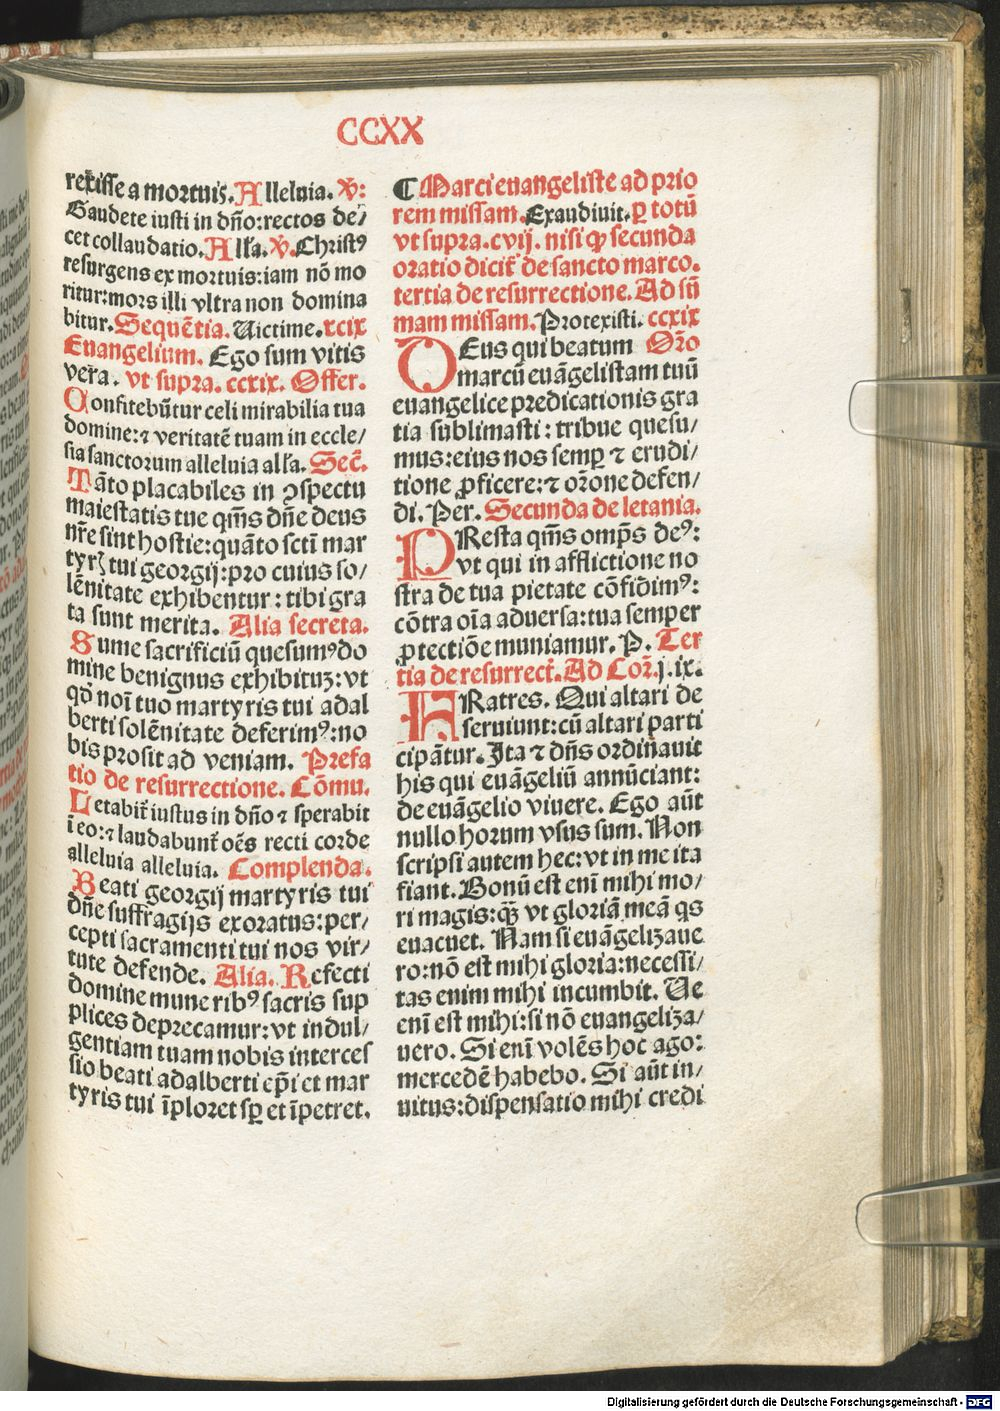 CCXX
rexisse a mortuis. Alleluia. V:
Gaudete iusti in dño: rectos de/
cet collaudatio. Alľa. V. Christꝰ
resurgens ex mortuis: iam nō mo
ritur: mors illi vltra non domina
bitur. Sequētia. Uictime. xcix
Euangelium. Ego sum vitis
vera. vt supra. ccxix. Offer.
Confitebūtur celi mirabilia tua
domine: ⁊ veritatē tuam in eccle/
sia sanctorum alleluia alľa. Sec̄.
Tāto placabiles in ꝯspectu
maiestatis tue qm̄s dñe deus
nr̄e sint hostie: quāto sctī mar
tyrꝭ tui georgij: pro cuius so/
lēnitate exhibentur: tibi gra
ta sunt merita. Alia secreta.
Sume sacrificiū quesumꝰ do
mine benignus exhibituꝫ: vt
qd̄ noī tuo martyris tui adal
berti solēnitate deferimꝰ: no
bis prosit ad veniam. Prefa
tio de resurrectione. Cōmu.
Letabit̄ iustus in dño ⁊ sperabit
ī eo: ⁊ laudabunt̄ oēs recti corde
alleluia alleluia. Complenda.
Beati georgij martyris tui
dñe suffragijs exoratus: per/
cepti sacramenti tui nos vir/
tute defende. Alia. Refecti
domine muneribꝰ sacris sup
plices deprecamur: vt indul/
gentiam tuam nobis interces
sio beati adalberti ep̄i et mar
tyris tui īploret sꝑ et īpetret.
¶ Marci euangeliste ad prio
rem missam. Exaudiuit. ꝑ totū
vt supra. cvij. nisi ꝙ secunda
oratio dicit̄ de sancto marco.
tertia de resurrectione. Ad sū
mam missam. Protexisti. ccxix
DEus qui beatum Or̄o
marcū euāgelistam tuū
euangelice predicationis gra
tia sublimasti: tribue quesu/
mus: eius nos semꝑ ⁊ erudi/
tione ꝓficere: ⁊ or̄one defen/
di. Per. Secunda de letania.
PResta qm̄s omp̄s deꝰ:
vt qui in afflictione no
stra de tua pietate cōfidimꝰ:
cōtra oīa aduersa: tua semper
ꝓtectiōe muniamur. P. Ter
tia de resurrect̄. Ad Cor̄. j. ix.
FRatres. Qui altari de
seruiunt: cū altari parti
cipātur. Ita ⁊ dn̄s ordinauit
his qui euāgeliū annūciant:
de euāgelio viuere. Ego aūt
nullo horum vsus sum. Non
scripsi autem hec: vt in me ita
fiant. Bonū est enī mihi mo/
ri magis: qꝫ̄ vt gloriā meā qs
euacuet. Nam si euāgelizaue
ro: nō est mihi gloria: necessi/
tas enim mihi incumbit. Ue
enī est mihi: si nō euangeliza/
uero. Si enī volēs hoc ago:
mercedē habebo. Si aūt in/
uitus: dispensatio mihi credi
Digitalisierung gefördert durch die Deutsche Forschungsgemeinschaft - DFG